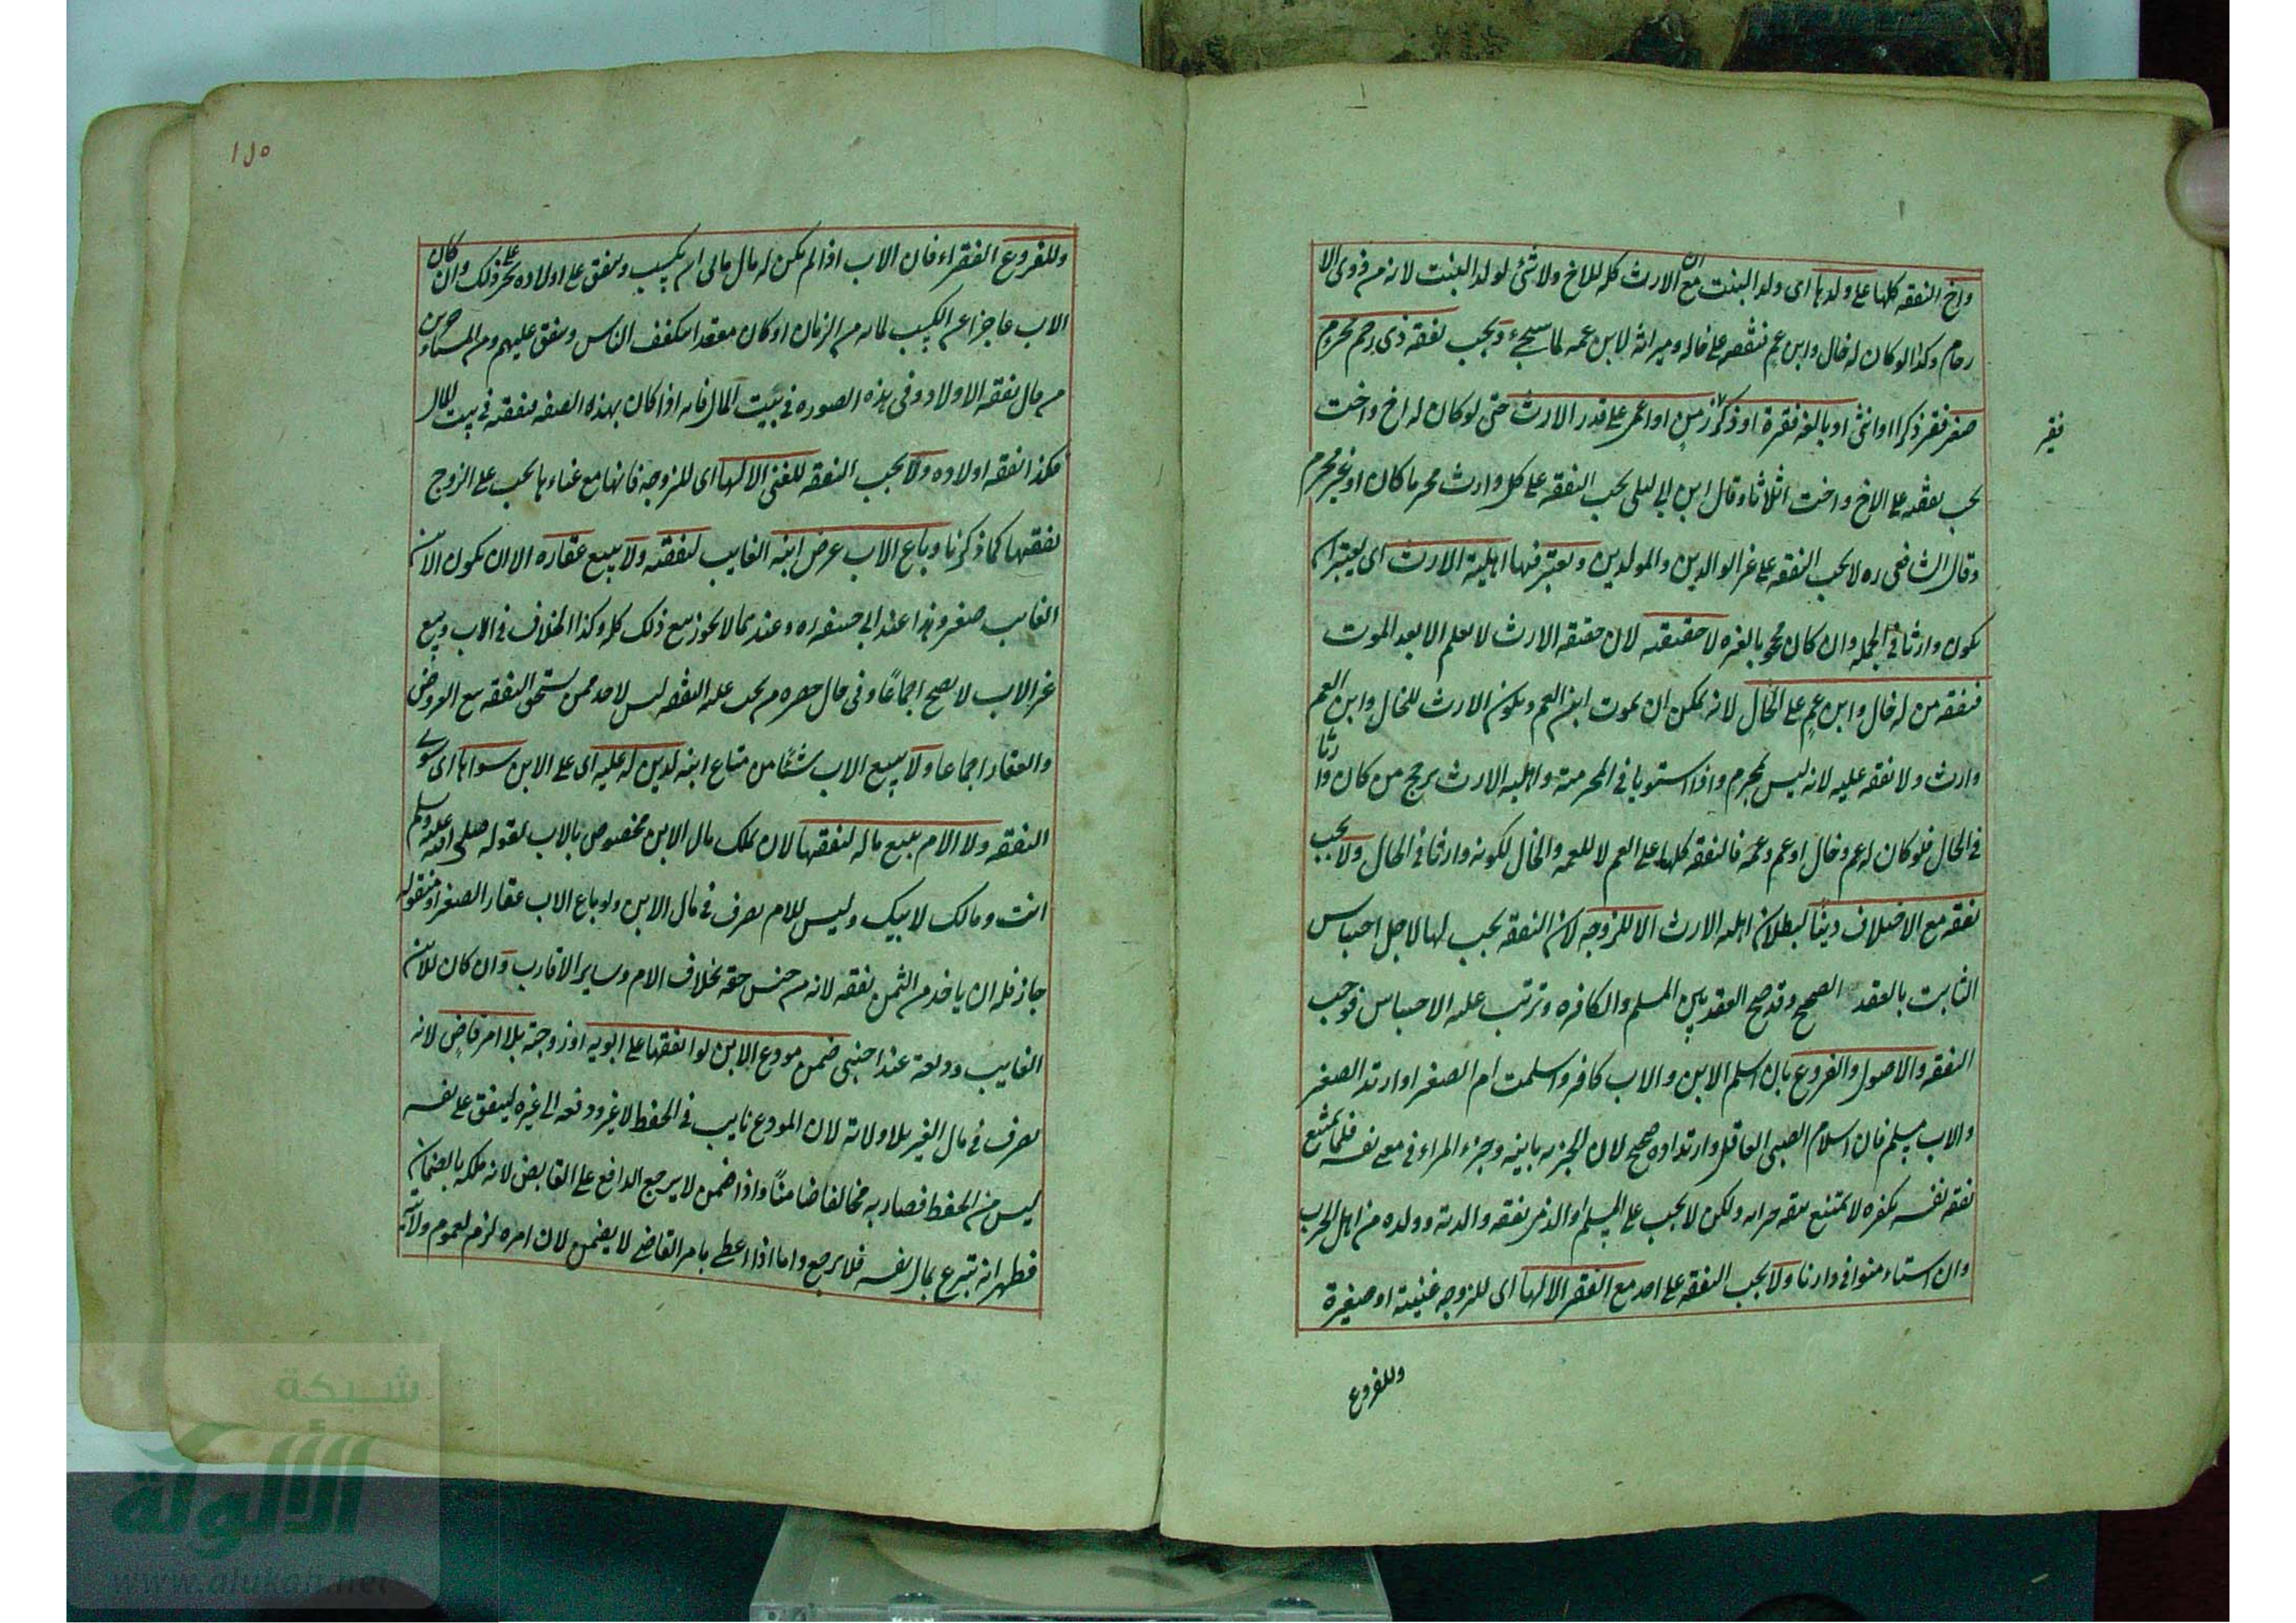 واخ النفقه كلها على ولدها اى ولد البنت مع ان الارث كله للاخ ولا شئ لولد البنت لانه من ذوى الا
رحام وكذا لو كان له خال وابن عم فنفقته على خاله وميراثه لابن عمه لما سيجئ ويجب نفقة ذى رحم محرم
صغير فقير ذكرا او انثى او بالغه فقيرة او ذكر زمن او اعمى على قدر الارث حتى لو كان له اخ واخت
فقير
يجب نفقته على الاخ واخت اثلاثا وقال ابن ابى ليلى يجب النفقه على كل وارث محرما كان او غير محرم
وقال الشافعى ره لا يجب النفقه على غير الوالدين والمولودين ويعتبر فيها اهلية الارث اى يعتبر ان
يكون وارثا فى الجمله وان كان محجوبا لغيره لا حقيقته لان حقيقه الارث لا يعلم الا بعد الموت
فنفقه من له خال وابن عم على الخال لانه يمكن ان يموت ابن العم ويكون الارث للخال وابن العم
وارث ولا نفقه عليه لانه ليس بمحرم واذا استويا فى المحرمية واهليه الارث يرجح من كان وارثا
فى الحال فلو كان له عم وخال او عم وعمه فالنفقه كلها على العم لا للعمه والخال لكونه وارثا فى الحال ولا يجب
نفقه مع الاختلاف دينًا لبطلان اهليه الارث الا للزوجه لان النفقه يجب لها لاجل احتباس
الثابت بالعقد الصحيح وقد صح العقد بين المسلم والكافره وترتب عليه الاحتباس فوجب
النفقه والاصول والفروع بان اسلم الابن والاب كافر واسلمت ام الصغير او ارتد الصغير
والاب مسلم فان اسلام الصبى العاقل وارتداده صحيح لان الجزئيه باينه وجزء المراء فى معنى نفسه فلما يمتنع
نفقه نفسه بكفره لا يمتنع نفقه جزائه ولكن لا يجب على المسلم او الذمى نفقه والديه وولده من اهل الحرب
وان استاءمنوا فى دارنا ولا يجب النفقه على احد مع الفقر الا لها اى للزوجه غنيته او صغيرة
وللفروع
١٥٠
وللفروع الفقراء فان الاب اذا لم يكن له مال مالى ام يكسب وينفق على اولاده على نحو ذلك وان كان
الاب عاجزا عن الكسب لما به من الزمان او كان مقعدا يتكفف الناس وينفق عليهم ومن المتاءخرين
من قال نفقه الاولاد وفى هذه الصوره فى بيت المال فانه اذا كان بهذه الصفه فنفقته فى بيت المال
فكذا نفقه اولاده ولا يجب النفقه للغنى الا لها اى للزوجه فانها مع غناءها يجب على الزوج
نفقتها كما ذكرنا وباع الاب عرض ابنه الغايب لنفقته ولا يبيع عقاره الا ان يكون الابن
الغايب صغير وهذا عند ابى حنيفه ره وعندهما لا يجوز بيع ذلك كله وكذا الخلاف فى الاب وبيع
غير الاب لا يصح اجماعًا وفى حال حضره من يجب عليه النفقه ليس لاحد ممن يستحق النفقه بيع العروض
والعقار اجماعا ولا يبيع الاب شئًا من متاع ابنه لدين له عليه اى على الابن سواها اى سوى
النفقه ولا الام يبيع ماله لنفقتها لان تملك مال الابن مخصوص بالاب لقوله صلى الله عليه وسلم
انت ومالك لابيك وليس للام تصرف فى مال الابن ولو باع الاب عقار الصغير او منقوله
جاز فله ان ياخذ من الثمن نفقه لانه من جنس حقه بخلاف الام وساير الاقارب وان كان للابن
الغايب وديعة عند اجنبى ضمن مودع الابن لو انفقها على ابويه او زوجته بلا امر قاضٍ لانه
تصرف فى مال الغير بلا ولاية لان المودع نايب فى الحفظ لا غير ودفعه الى غيره لينفق على نفسه
ليس من الحفظ فصار به مخالفا ضامنًا واذا ضمن لا يرجع الدافع على القابض لانه ملكه بالضمان
فظهر انه تبرع بمال نفسه فلا يرجع واما اذا اعطى بامر القاضى لا يضمن لان امره لزم لعموم ولايته
شبكة
الألوكة
www.alukah.net